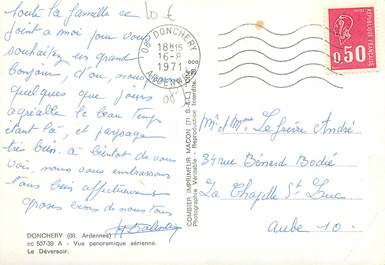 toute la famille se
joint a moi pour vous
souhaiter un grand
bonjour, d'ou, nous
quelques que jours
agréable le beau temp
étant là, et paysage
très bien. à bientôt de vous
voir. nous vous embrassons
tous bien affectueusement
groses bises de nous tous
DONCHERY (08. Ardennes)
cc 507-39 A - Vue panoramique aérienne.
Le Déversoir.
COMBIER IMPRIMEUR MACON (71 S.-et-L.)
Photographie Véritable - Reproduction Interdite.
08 DONCHERY
18H15
16-8
1971
ARDENNES
RÉPUBLIQUE FRANÇAISE
0,50
Mr et Mme Lefèvre André
34 rue Bénard Bodié
La Chapelle St Luc
Aube 10.